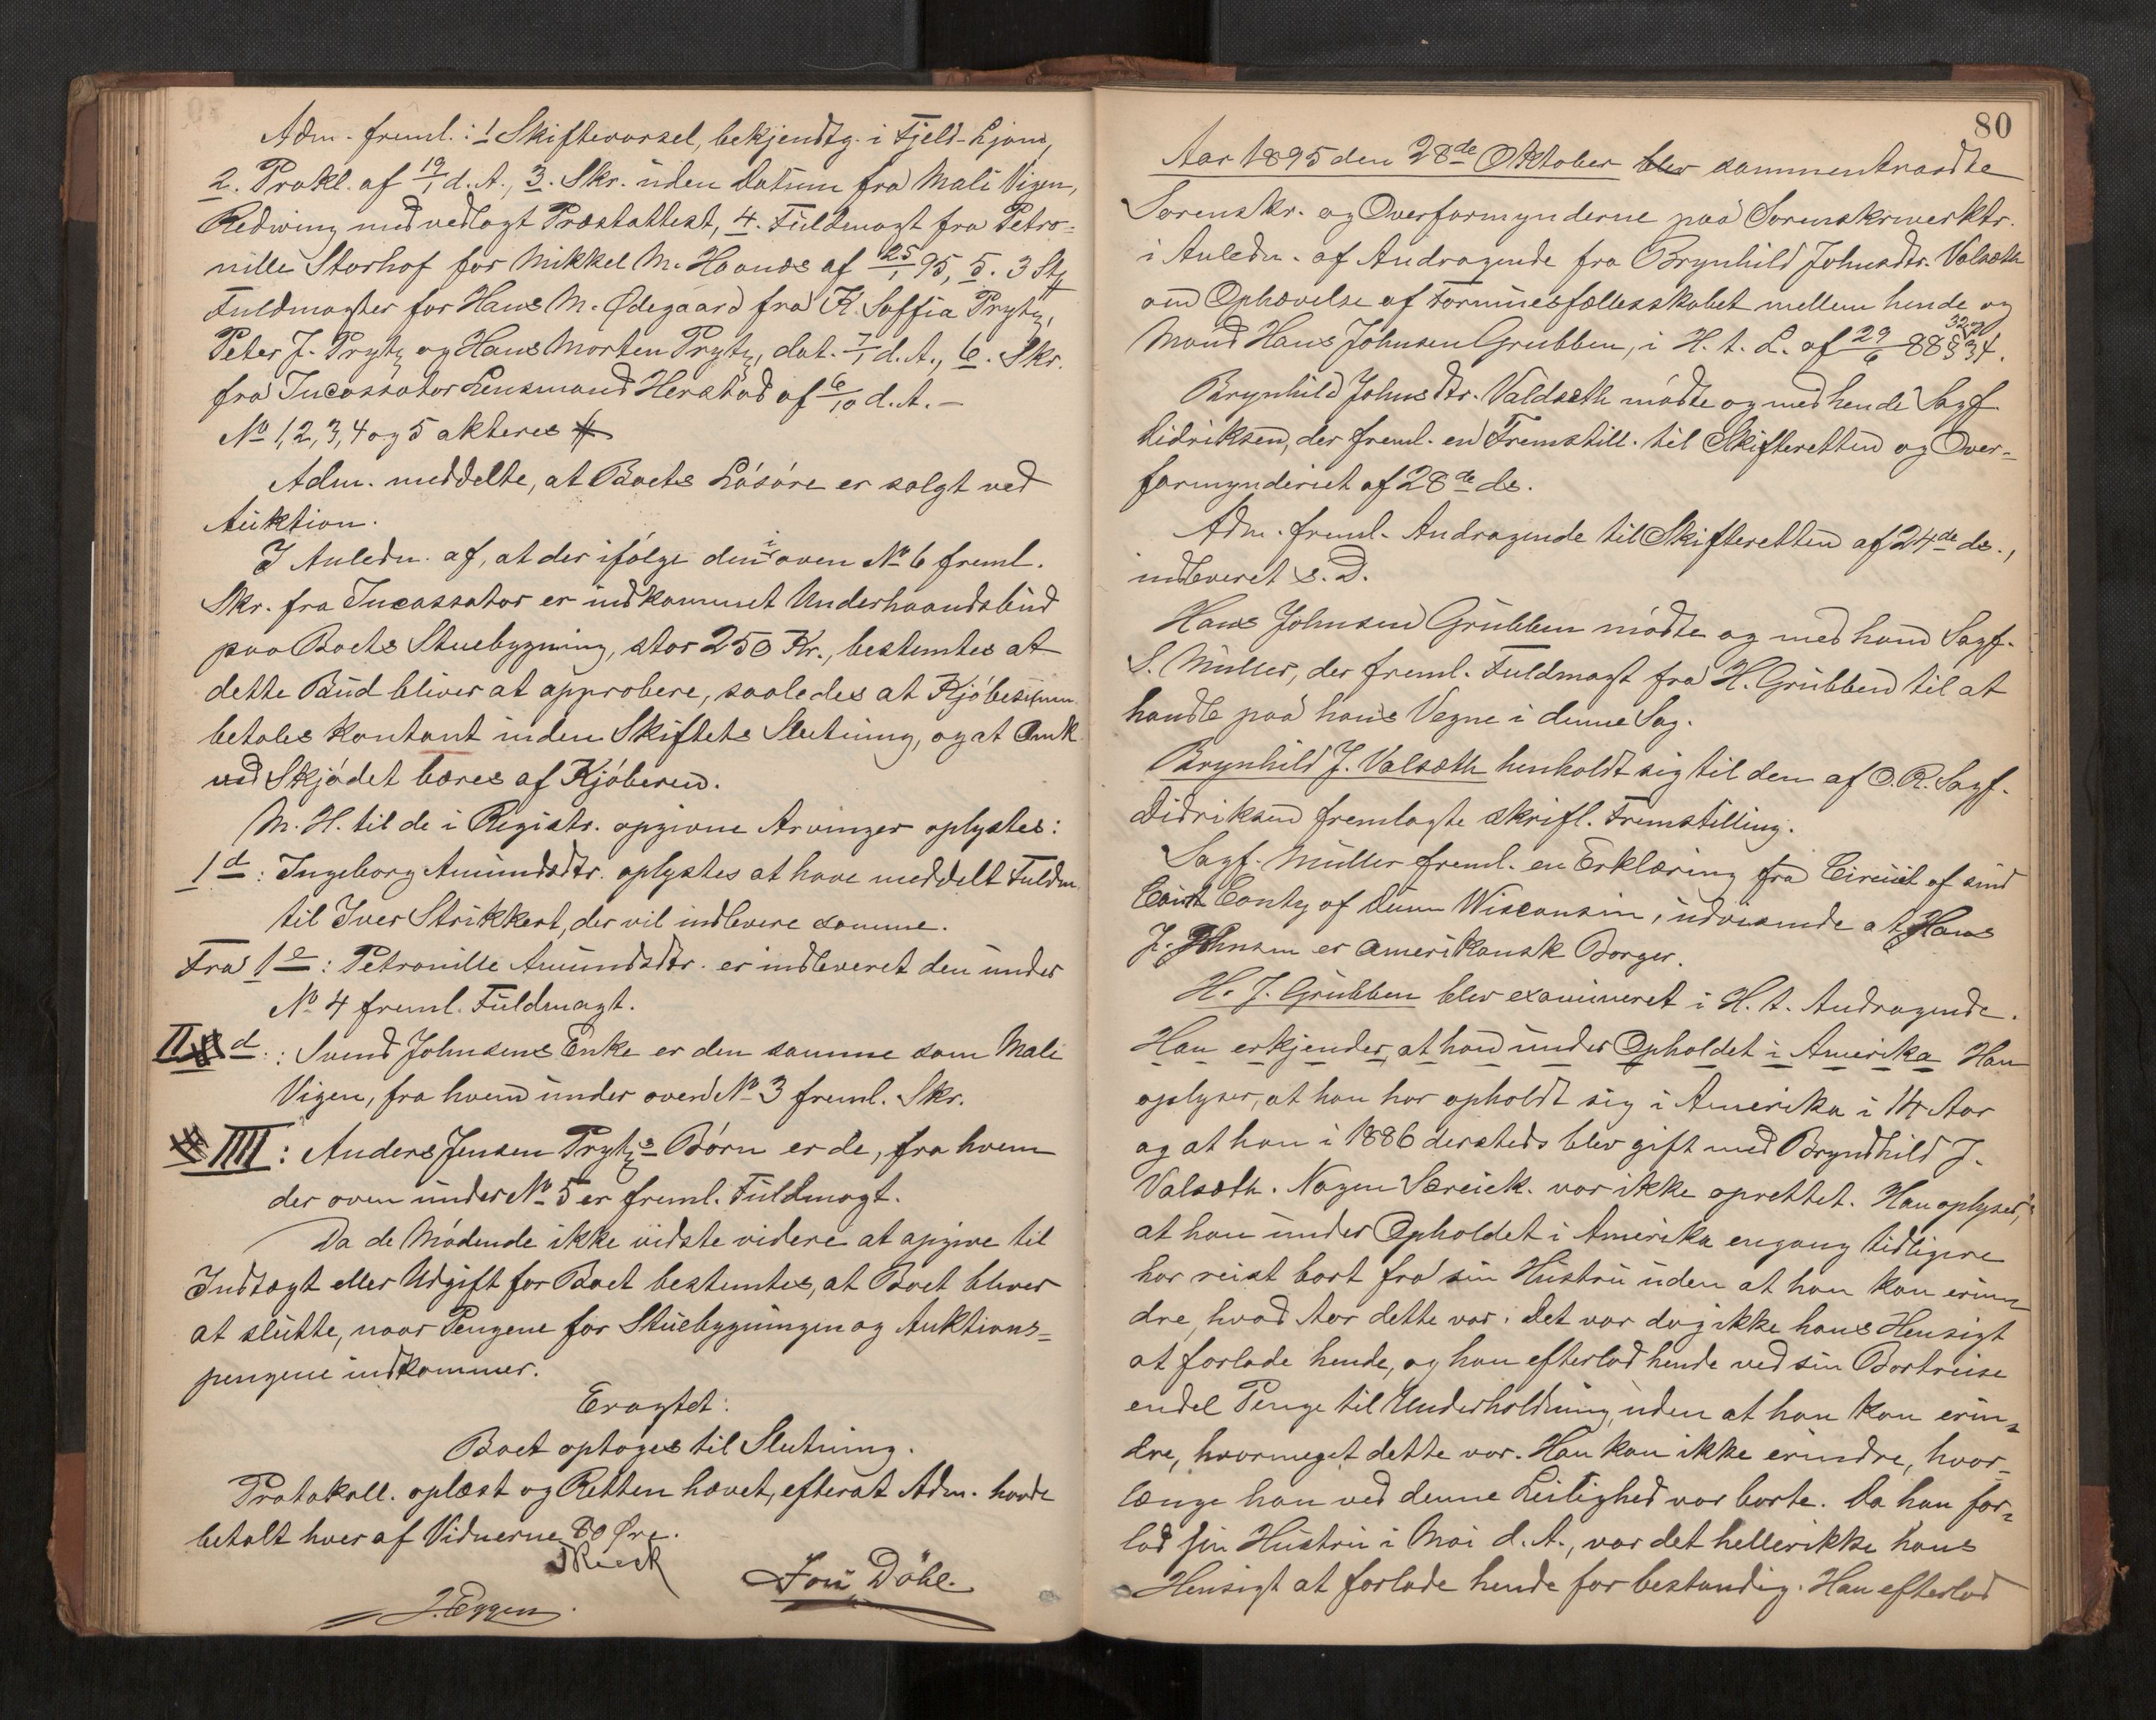 Adm. freml.: 1 Skiftevarsel, bekjendtg. i Fjeld-Ljom,
2. Prokl. af 19/1 d. A., 3. Skr. uden Datum fra Mali Vigen,
Redwing med vedlagt Præstattest, 4. Fuldmagt fra Petro-
nille Storhof for Mikkel M. Haanæs af 25/1 95, 5. 3 Stk
Fuldmagter for Hans M. Ødegaard fra K. Soffia Prytz,
Peter J. Prytz og Hans Morten Prytz, dat. 7/1 d. A., 6. Skr.
fra Incassator Lensmand Herstad af 6/10 d. A. –
No 1, 2, 3, 4 og 5 akteres
Adm. meddelte, at Boets Løsøre er solgt ved
Auktion.
I Anledn. af, at der ifølge den i oven No 6 freml.
Skr. fra Incassator er indkommet Underhaandsbud
paa Boets Stuebygning, stor 250 Kr., bestemtes at
dette Bud bliver at approbere, saaledes at Kjøbesum
betales kontant inden Skiftets Slutning, og at Omk.
ved Skjødet bæres af Kjøberen.
M. H. til de i Registr. opgivne Arvinger oplystes:
1 d: Ingeborg Amundsdtr. oplystes at have meddelt Fuldm.
til Iver Strikkert, der vil indlevere samme.
Fra 1 e: Petronille Amundsdtr. er indleveret den under
No 4 freml. Fuldmagt.
II d: Svend Johnsens Enke er den samme som Mali
Vigen, fra hvem under oven No 3 freml. Skr.
IIII: Anders Jensen Prytz's Børn er de, fra hvem
der oven under No 5 er freml. Fuldmagt.
Da de Mødende ikke vidste videre at opgive til
Indtægt eller Udgift for Boet bestemtes, at Boet bliver
at slutte, naar Pengene for Stuebygningen og Auktions-
pengene indkommer.
Eragtet:
Boet optages til Slutning.
Protokoll. oplæst og Retten hævet, efterat Adm. havde
betalt hver af Vidnerne 80 Øre.
Rieck
Jon Döhl.
J. Eggen
80
Aar 1895 den 28de Oktober blev sammentraadte
Sorenskr. og Overformynderne paa Sorenskriverktr.
i Anledn. af Andragende fra Brynhild Johnsdtr. Valsæth
om Ophævelse af Formuesfællesskabet mellem hende og
Mand Hans Johnsen Grubben, i H. t. L. af 29/6 88 § 34.
Brynhild Johnsdtr. Valdseth mødte og med hende Sagf.
Didriksen, der freml. en Fremstill. til Skifteretten og Over-
formynderiet af 28de ds.
Adm. freml. Andragende til Skifteretten af 24de ds.,
indleveret s. D.
Hans Johnsen Grubben mødte og med ham Sagf.
S. Müller, der freml. Fuldmagt fra H. Grubben til at
handle paa hans Vegne i denne Sag.
Brynhild J. Valsæth henholdt sig til den af O. R. Sagf.
Didriksen fremlagte skrifl. Fremstilling.
Sagf. Müller freml. en Erklæring fra Circuit of sind
Court Conty of Dunn Wisconsin, udvisende at Hans
J. Johnsen er amerikansk Borger.
H. J. Grubben blev examineret i H. t. Andragende.
Han erkjender, at han under Opholdet i Amerika Han
oplyser, at han har opholdt sig i Amerika i 14 Aar
og at han i 1886 dersteds blev gift med Bryndhild J.
Valsæth. Nogen Særeiek. var ikke oprettet. Han oplyser,
at han under Opholdet i Amerika engang tidligere
har reist bort fra sin Hustru uden at han kan erin-
dre, hvad Aar dette var. Det var dog ikke hans Hensigt
at forlade hende, og han efterlod hende ved sin Bortreise
endel Penge til Underholdning, uden at han kan erin-
dre, hvormeget dette var. Han kan ikke erindre, hvor-
længe han ved denne Leilighed var borte. Da han for-
lod sin Hustru i Mai d. A., var det heller ikke hans
Hensigt at forlade hende for bestandig. Han efterlod